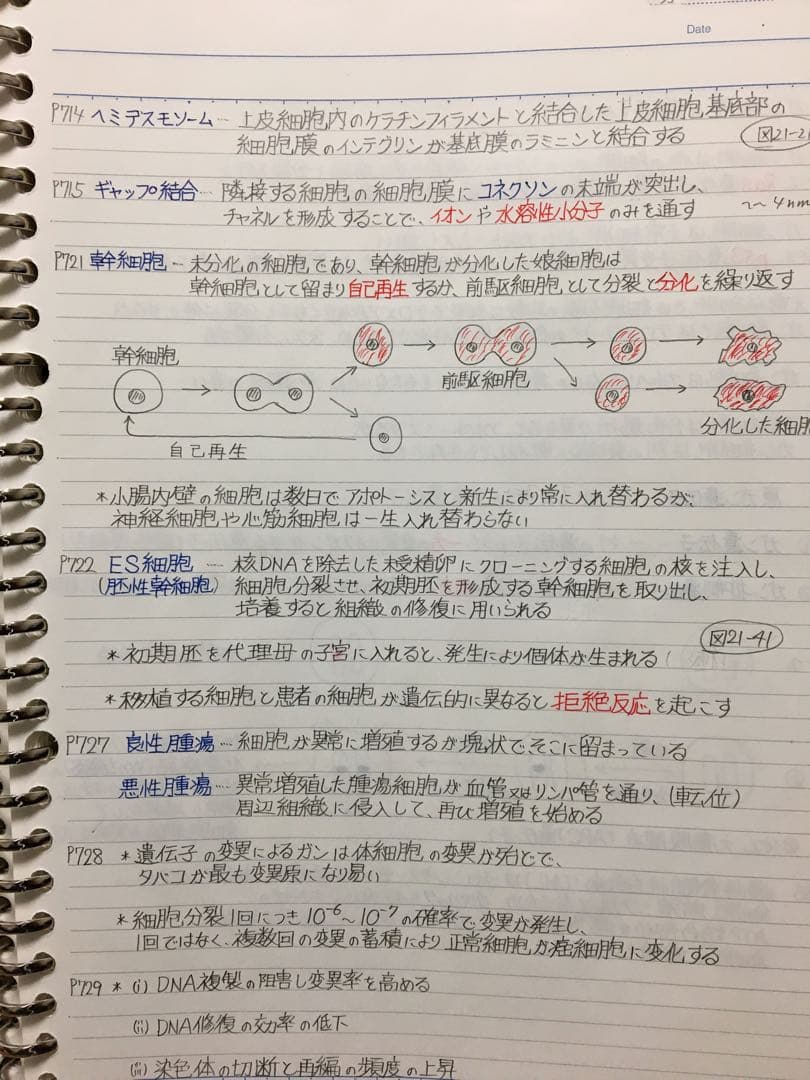 Date
P714 ヘミデスモソーム… 上皮細胞内のケラチンフィラメントと結合した上皮細胞基底部の
細胞膜のインテグリンが基底膜のラミニンと結合する
図21-2
P715 ギャップ結合… 隣接する細胞の細胞膜にコネクソンの末端が突出し、
チャネルを形成することで、イオンや水溶性小分子のみを通す
~4nm
P721 幹細胞… 未分化の細胞であり、幹細胞が分化した娘細胞は
幹細胞として留まり自己再生するか、前駆細胞として分裂と分化を繰り返す
幹細胞
前駆細胞
分化した細胞
自己再生
*小腸内壁の細胞は数日でアポトーシスと新生により常に入れ替わるが、
神経細胞や心筋細胞は一生入れ替わらない
P722 ES細胞 … 核DNAを除去した未受精卵にクローニングする細胞の核を注入し、
(胚性幹細胞) 細胞分裂させ、初期胚を形成する幹細胞を取り出し、
培養すると組織の修復に用いられる
図21-41
*初期胚を代理母の子宮に入れると、発生により個体が生まれる
*移植する細胞と患者の細胞が遺伝的に異なると拒絶反応を起こす
P727 良性腫瘍… 細胞が異常に増殖するが塊状で、そこに留まっている
悪性腫瘍… 異常増殖した腫瘍細胞が血管又はリンパ管を通り、(転位)
周辺組織に侵入して、再び増殖を始める
P728 *遺伝子の変異によるガンは体細胞の変異が殆どで、
タバコが最も変異原になり易い
*細胞分裂1回につき10⁻⁶~10⁻⁷の確率で変異が発生し、
1回ではなく、複数回の変異の蓄積により正常細胞が癌細胞に変化する
P729 *(i) DNA複製の阻害し変異率を高める
(ii) DNA修復の効率の低下
(iii) 染色体の切断と再編の頻度の上昇